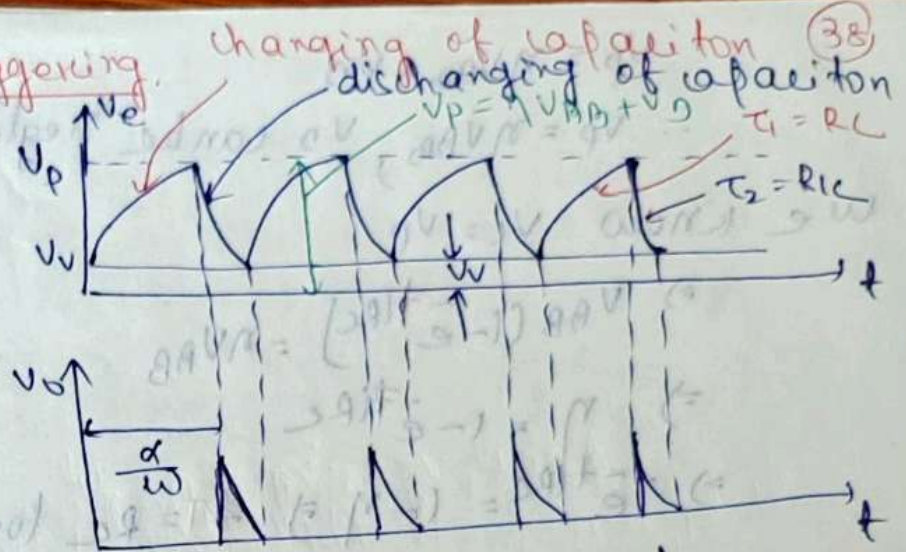 ggering. Changing of capaciton 38
dischanging of capaciton
Ve
Vp = ηVBB + VD
τ1 = RC
Vp
τ2 = R1C
Vv
Vv
t
Vo
α/ω
t